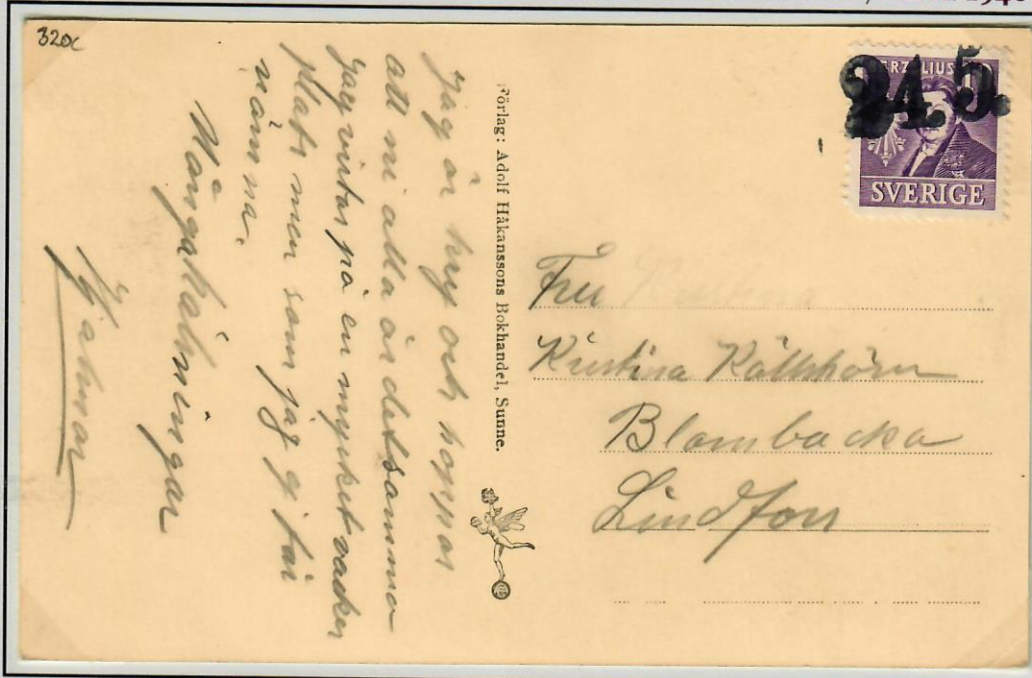 1940
320c
Jag är kry och hoppas
att ni alla är detsamma
Jag vistas på en mycket vacker
plats men som jag ej får
nämna.
Många hälsningar
Hjalmar
Förlag: Adolf Håkanssons Bokhandel, Sunne.
BERZELIUS
24. 5.
SVERIGE
Fru
Kristina
Blombacka
Lindfors